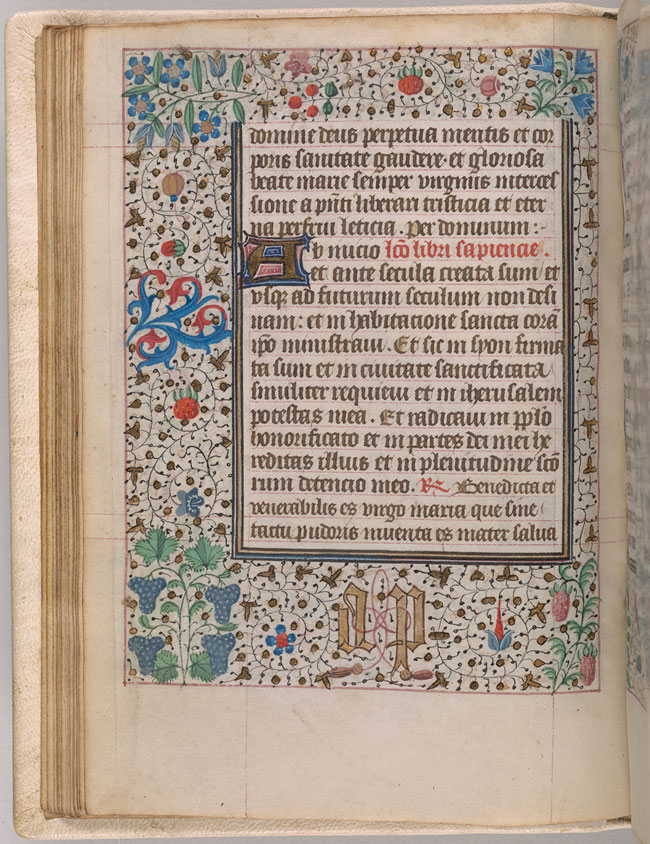 domine deus perpetua mentis et cor
poris sanitate gaudere · et gloriosa
beate marie semper virginis interces
sione a pñti liberari tristicia et eter
na perfrui leticia . per dominum :-
Ab nucio lcõ libri sapiencie .
et ante secula creata sum et
vsqʒ ad futurum seculum non desi
nam : et in habitacione sancta corã
ipõ ministraui . Et sic in syon firma
ta sum et in ciuitate sanctificata
similiter requieui et in iherusalem
potestas mea . Et radicaui in pplõ
honorificato et in partes dei mei he
reditas illius et in plenitudine scõ
rum detencio meo . Benedicta et
venerabilis es virgo maria que sine
tactu pudoris inuenta es mater salua